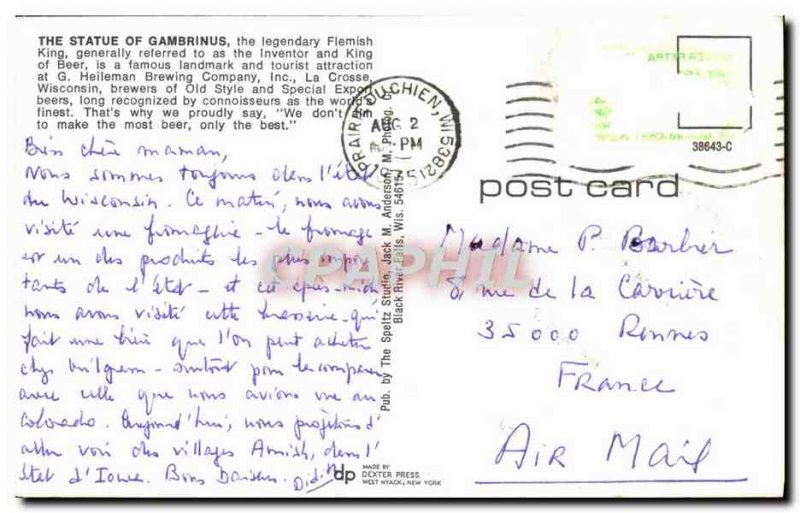 THE STATUE OF GAMBRINUS, the legendary Flemish
King, generally referred to as the Inventor and King
of Beer, is a famous landmark and tourist attraction
at G. Heileman Brewing Company, Inc., La Crosse,
Wisconsin, brewers of Old Style and Special Export
beers, long recognized by connoisseurs as the world's
finest. That's why we proudly say, "We don't aim
to make the most beer, only the best."
Bien chère maman,
Nous sommes toujours dans l'état
du Wisconsin. Ce matin, nous avons
visité une fromagerie - le fromage
est un des produits les plus impor
tants de l'état - et cet après-midi
nous avons visité cette brasserie - qui
fait une bière que l'on peut acheter
chez - surtout pour la comparer
avec celle que nous avions vue au
Colorado. Aujourd'hui, nous projetons d'
aller voir des villages Amish, dans l'
état d'Iowa. Bons Baisers. Didi
PRAIRIE DU CHIEN, WI 53821
AUG 2
PM
1975
Pub. by The Speltz Studio, Jack M. Anderson, M. Photog. C
Black River Falls, Wis. 54615
38643-C
post card
Madame P. Barbier
8 rue de la Carrière
35000 Rennes
France
Air Mail
CPAPHIL
dp
MADE BY
DEXTER PRESS
WEST NYACK, NEW YORK